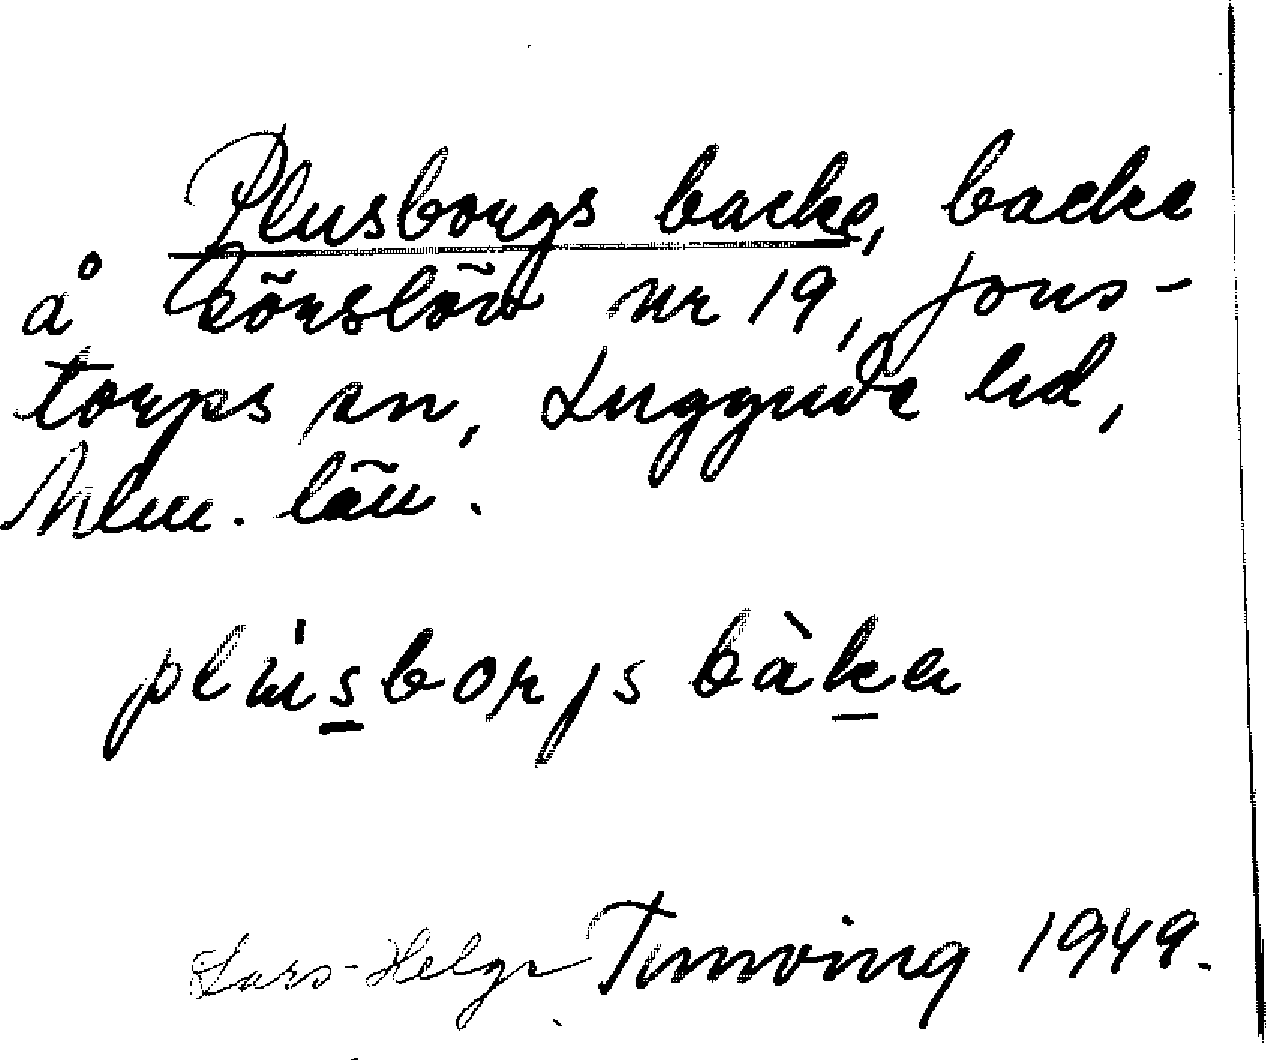 Plusborgs backe, backe
å Rörslöv nr 19, Jons-
torps sn, Luggude hd,
Mlm. län.
plusborjs bàka
Lars-Helge Tunving 1949.